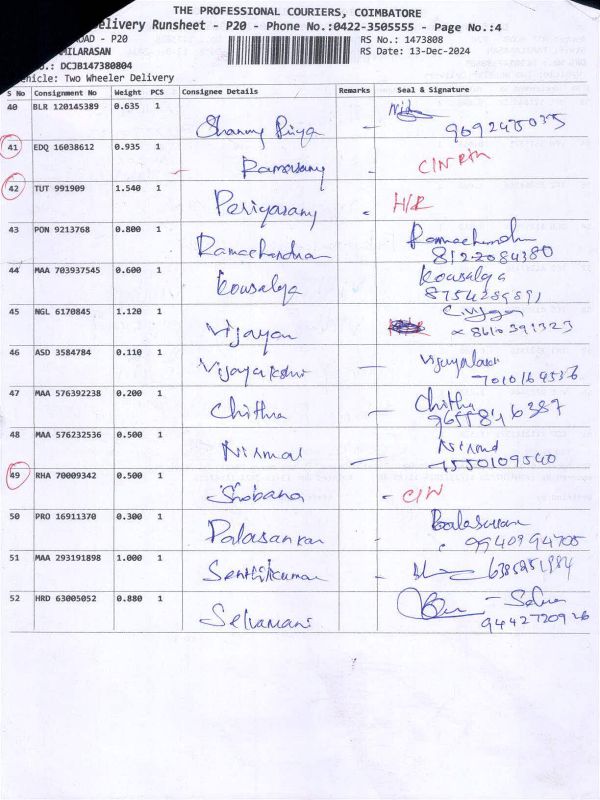 THE PROFESSIONAL COURIERS, COIMBATORE
elivery Runsheet - P20 - Phone No.:0422-3505555 - Page No.:4
OAD - P20 RS No.: 1473808
MILARASAN RS Date: 13-Dec-2024
o.: DCJB147380804
ehicle: Two Wheeler Delivery
S No Consignment No Weight PCS Consignee Details Remarks Seal & Signature
40 BLR 120145389 0.635 1 Priya
41 EDQ 16038612 0.935 1 Ramasamy
42 TUT 991909 1.540 1 Periyasamy - H/R
43 PON 9213768 0.800 1 Ramachandran - Ramachandran
8122084380
44 MAA 703937545 0.600 1 Kousalya Kousalya
8754289891
45 NGL 6170845 1.120 1 Vijayan C.Vijayan
8610391323
46 ASD 3584784 0.110 1 Vijayalakshmi - Vijayalakshmi
7010169536
47 MAA 576392238 0.200 1 Chithra - Chithra
48 MAA 576232536 0.500 1 Nirmal - Nirmal
49 RHA 70009342 0.500 1 Shobana - CIN
50 PRO 16911370 0.300 1 Palasankar Balasankar
- 9940994705
51 MAA 293191898 1.000 1 Senthilkumar - 6385251984
52 HRD 63005052 0.880 1 Selvamani - Selva
9442720926